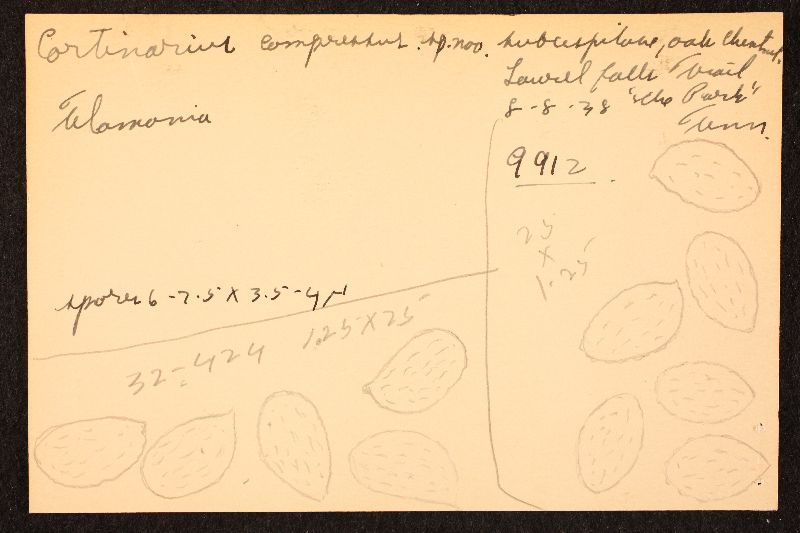 Cortinarius compressus. sp. nov. subcespitose, oak chestnut.
Laurel falls Trail
8-8-38 "the Park"
Tenn.
Telamonia
9912
25
x
1.25
spores 6-7.5 X 3.5-4 µ
32-424 1.25 X 25